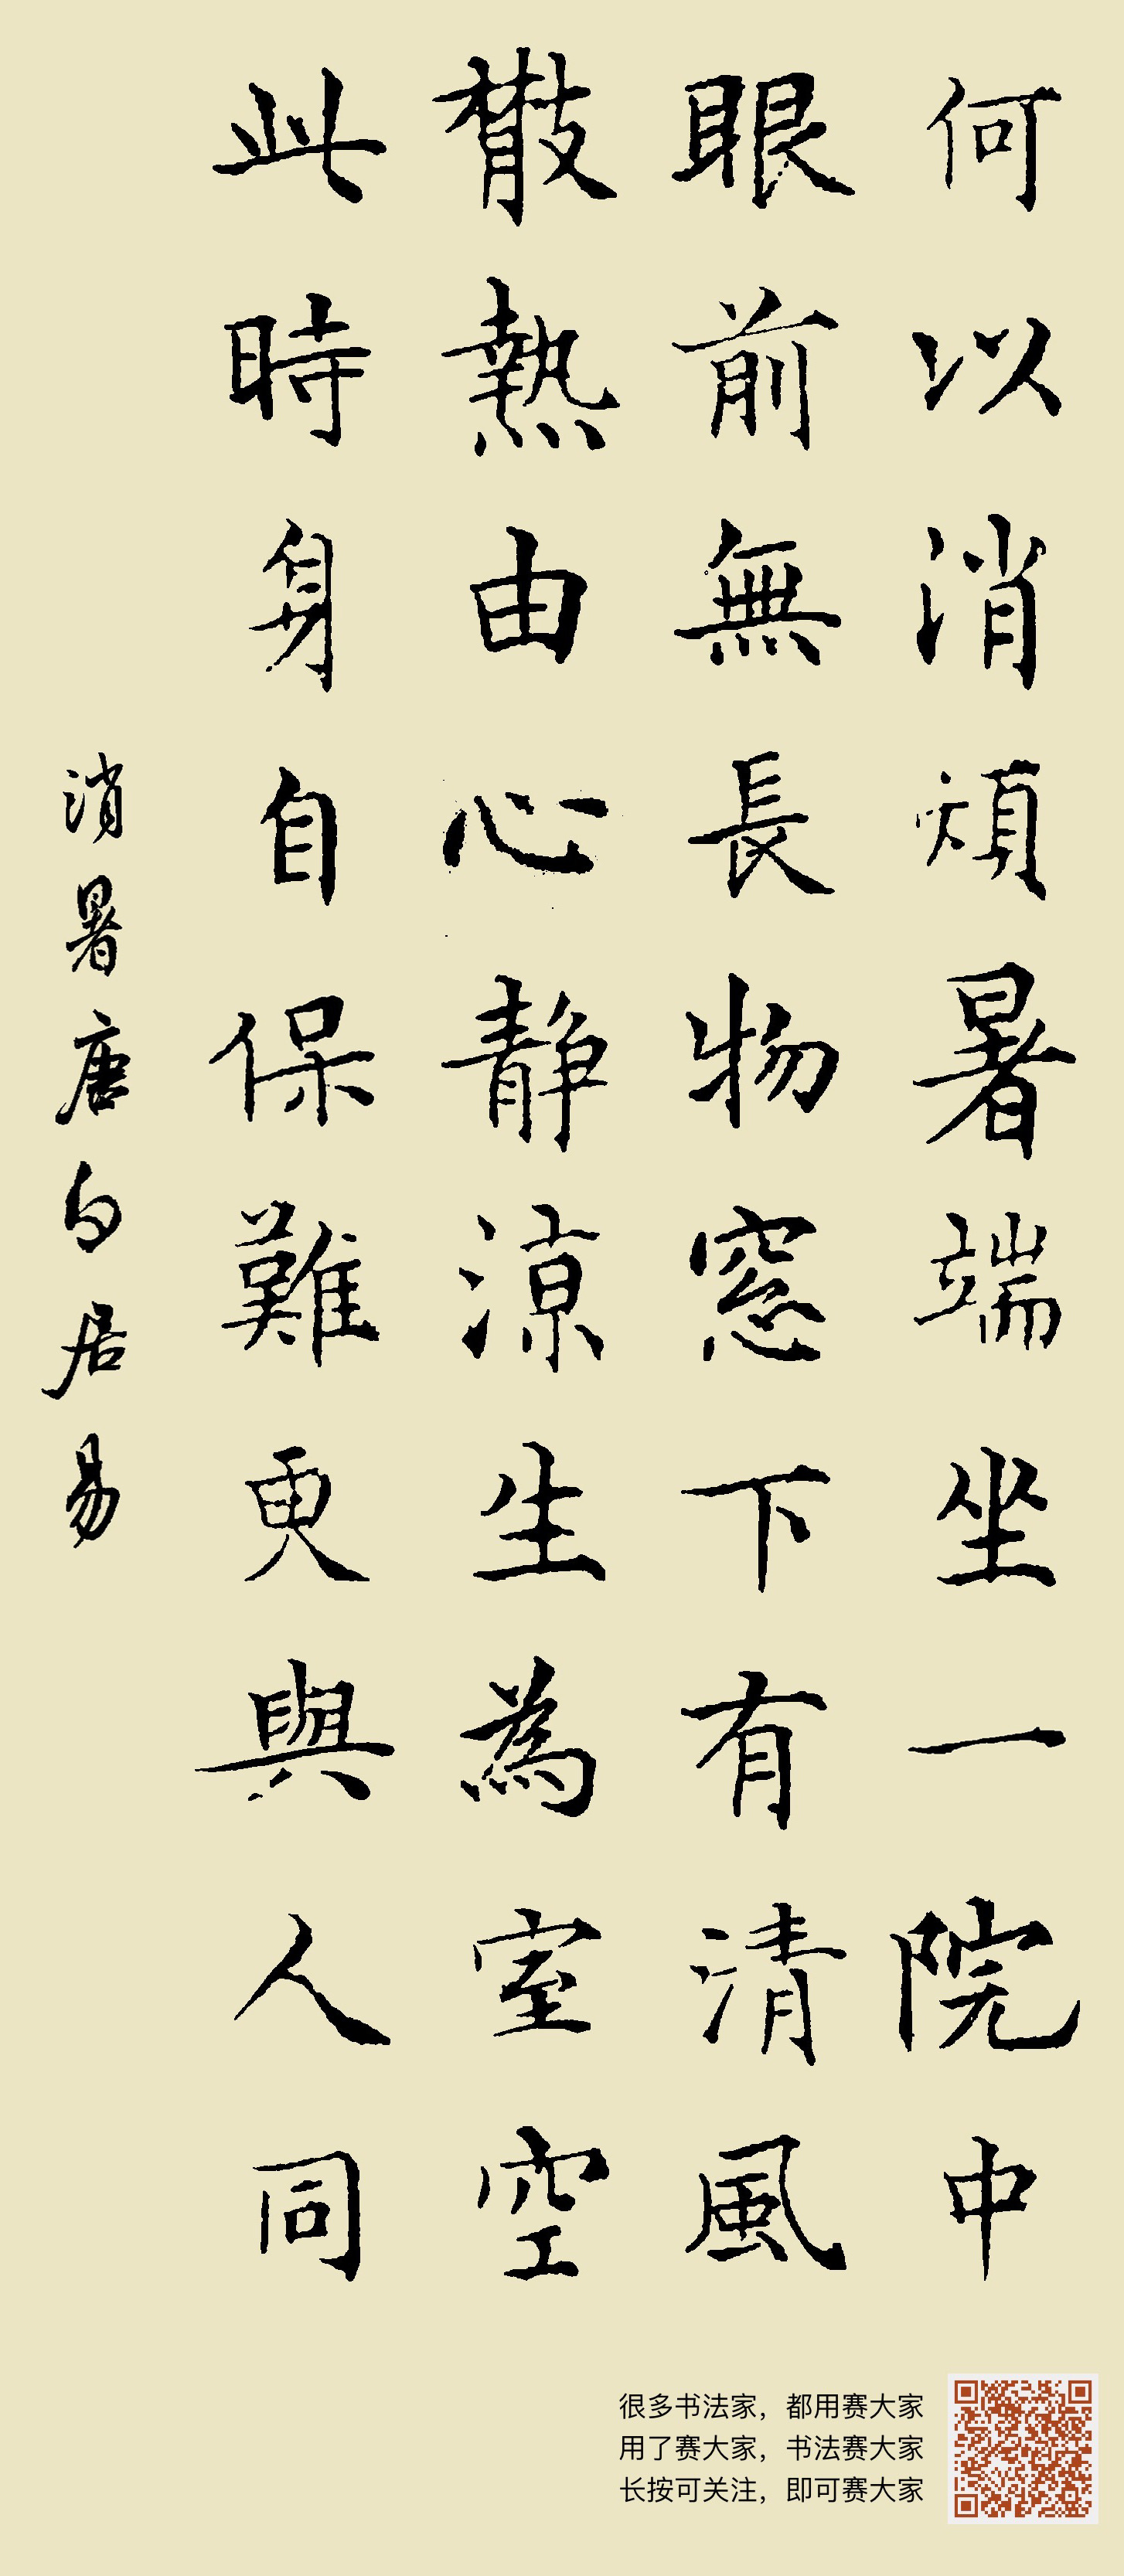 何以消煩暑端坐一院中
眼前無長物窓下有清風
散熱由心靜涼生為室空
此時身自保難更與人同
消暑唐白居易
很多书法家，都用赛大家
用了赛大家，书法赛大家
长按可关注，即可赛大家